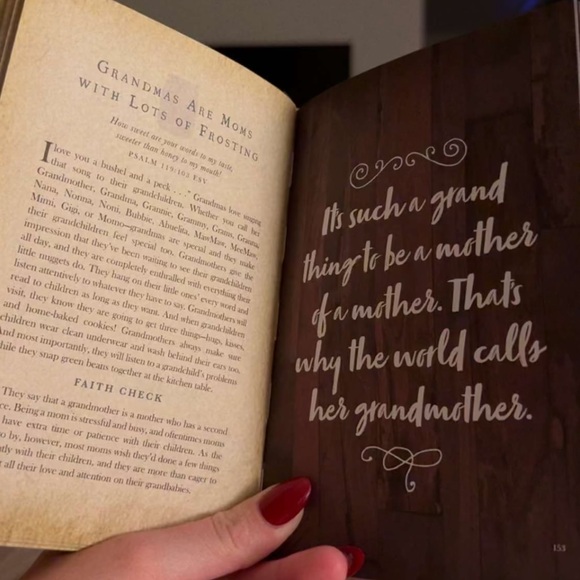 GRANDMAS ARE MOMS
WITH LOTS OF FROSTING
How sweet are your words to my taste,
sweeter than honey to my mouth!
PSALM 119:103 ESV
I love you a bushel and a peck . . ." Grandmas love singing
that song to their grandchildren. Whether you call her
Grandmother, Grandma, Grannie, Grammy, Gram, Grams,
Nana, Nonna, Noni, Bubbie, Abuelita, MawMaw, MeeMaw,
Mimi, Gigi, or Momo—grandmas are special and they make
their grandchildren feel special too. Grandmothers give the
impression that they've been waiting to see their grandchildren
all day, and they are completely enthralled with everything their
little nuggets do. They hang on their little ones' every word and
listen attentively to whatever they have to say. Grandmothers will
read to children as long as they want. And when grandchildren
visit, they know they are going to get three things—hugs, kisses,
and home-baked cookies! Grandmothers always make sure
children wear clean underwear and wash behind their ears too.
And most importantly, they will listen to a grandchild's problems
while they snap green beans together at the kitchen table.
FAITH CHECK
They say that a grandmother is a mother who has a second
Being a mom is stressful and busy, and oftentimes moms
have extra time or patience with their children. As the
go by, however, most moms wish they'd done a few things
with their children, and they are more than eager to
all their love and attention on their grandbabies.
It's such a grand
thing to be a mother
of a mother. That's
why the world calls
her grandmother.
153